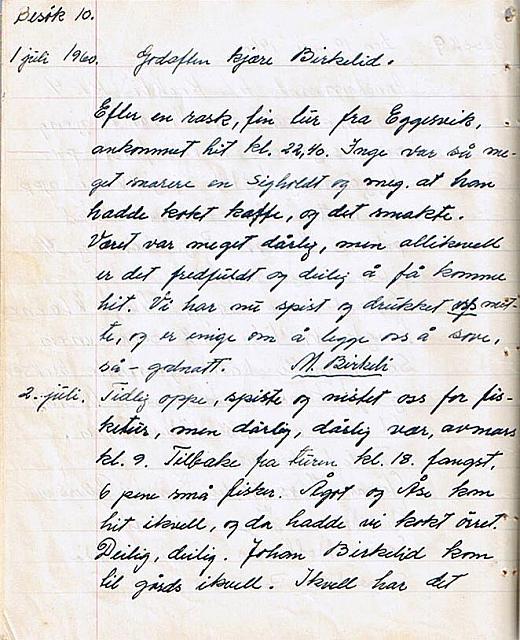 Besøk 10.
1 juli 1960. Godaften kjære Birkelid.
Efter en rask, fin tur fra Eggesvik,
ankommet hit kl. 22,40. Inge var så me-
get snarere en Sigholdt og meg. at han
hadde kokt kaffe, og det smakte.
Været var meget dårlig, men allikevell
er det fredfuldt og deilig å få komme
hit. Vi har nu spist og drukket oss met-
te, og er enige om å legge oss å sove,
så - godnatt. M. Birkeli
2. juli. Tidlig oppe, spiste og nistet oss for fis-
ketur, men dårlig, dårlig vær, avmars
kl. 9. Tilbake fra turen kl. 18. fangst,
6 pene små fisker. Ågot og Åse kom
hit ikvell, og da hadde vi kokt örret.
Deilig, deilig. Johan Birkelid kom
til gårds ikvell. Ikvell har det